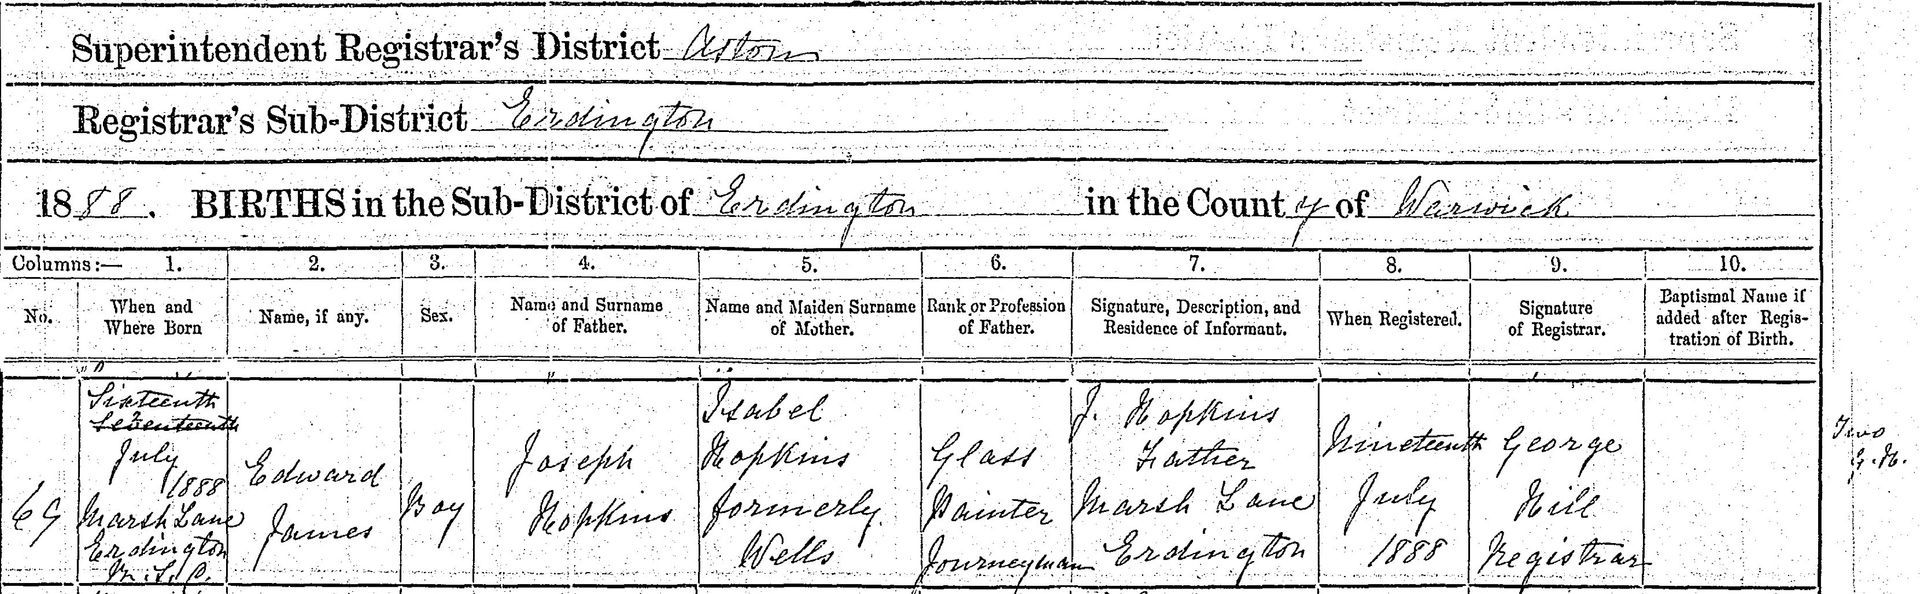 Superintendent Registrar's District Aston
Registrar's Sub-District Erdington
1888. BIRTHS in the Sub-District of Erdington in the County of Warwick
Columns:— 1. 2. 3. 4. 5. 6. 7. 8. 9. 10.
No. When and Where Born Name, if any. Sex. Name and Surname of Father. Name and Maiden Surname of Mother. Rank or Profession of Father. Signature, Description, and Residence of Informant. When Registered. Signature of Registrar. Baptismal Name if added after Registration of Birth.
69
Sixteenth
Seventeenth
July
1888
Marsh Lane
Erdington
Edward
James
Boy
Joseph
Hopkins
Isabel
Hopkins
formerly
Wells
Glass
Painter
Journeyman
J. Hopkins
Father
Marsh Lane
Erdington
Nineteenth
July
1888
George
Hill
Registrar
Two
G.H.